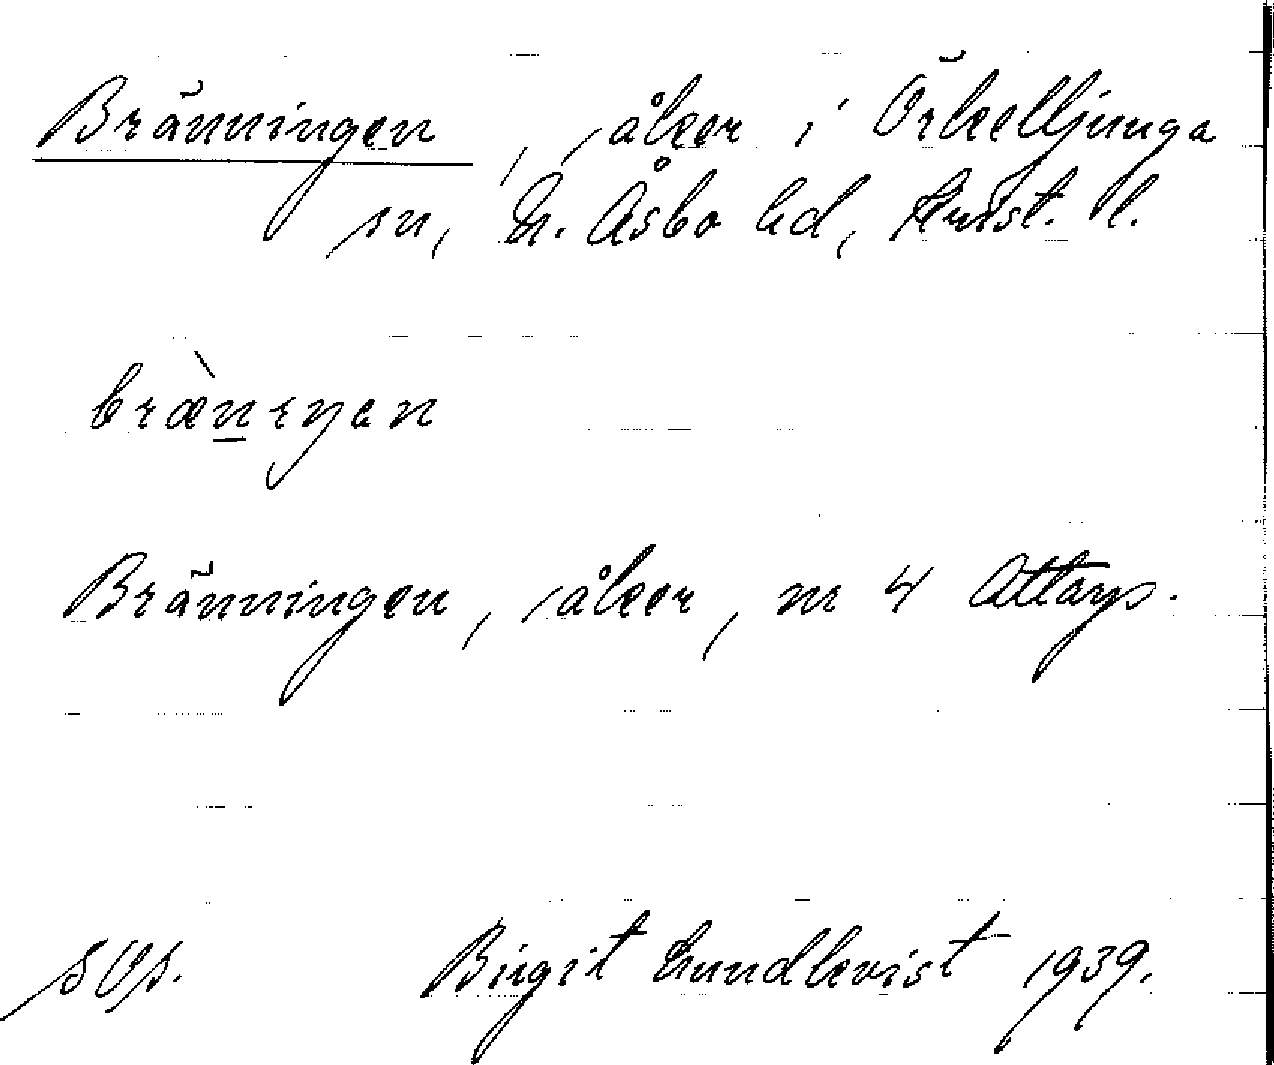 Bränningen, åker i Örkelljunga
sn, N. Åsbo hd, Krist. l.
bræ̀n̲ıŋen
Bränningen, åker, nr 4 Attarp.
Birgit Lundkvist 1939.